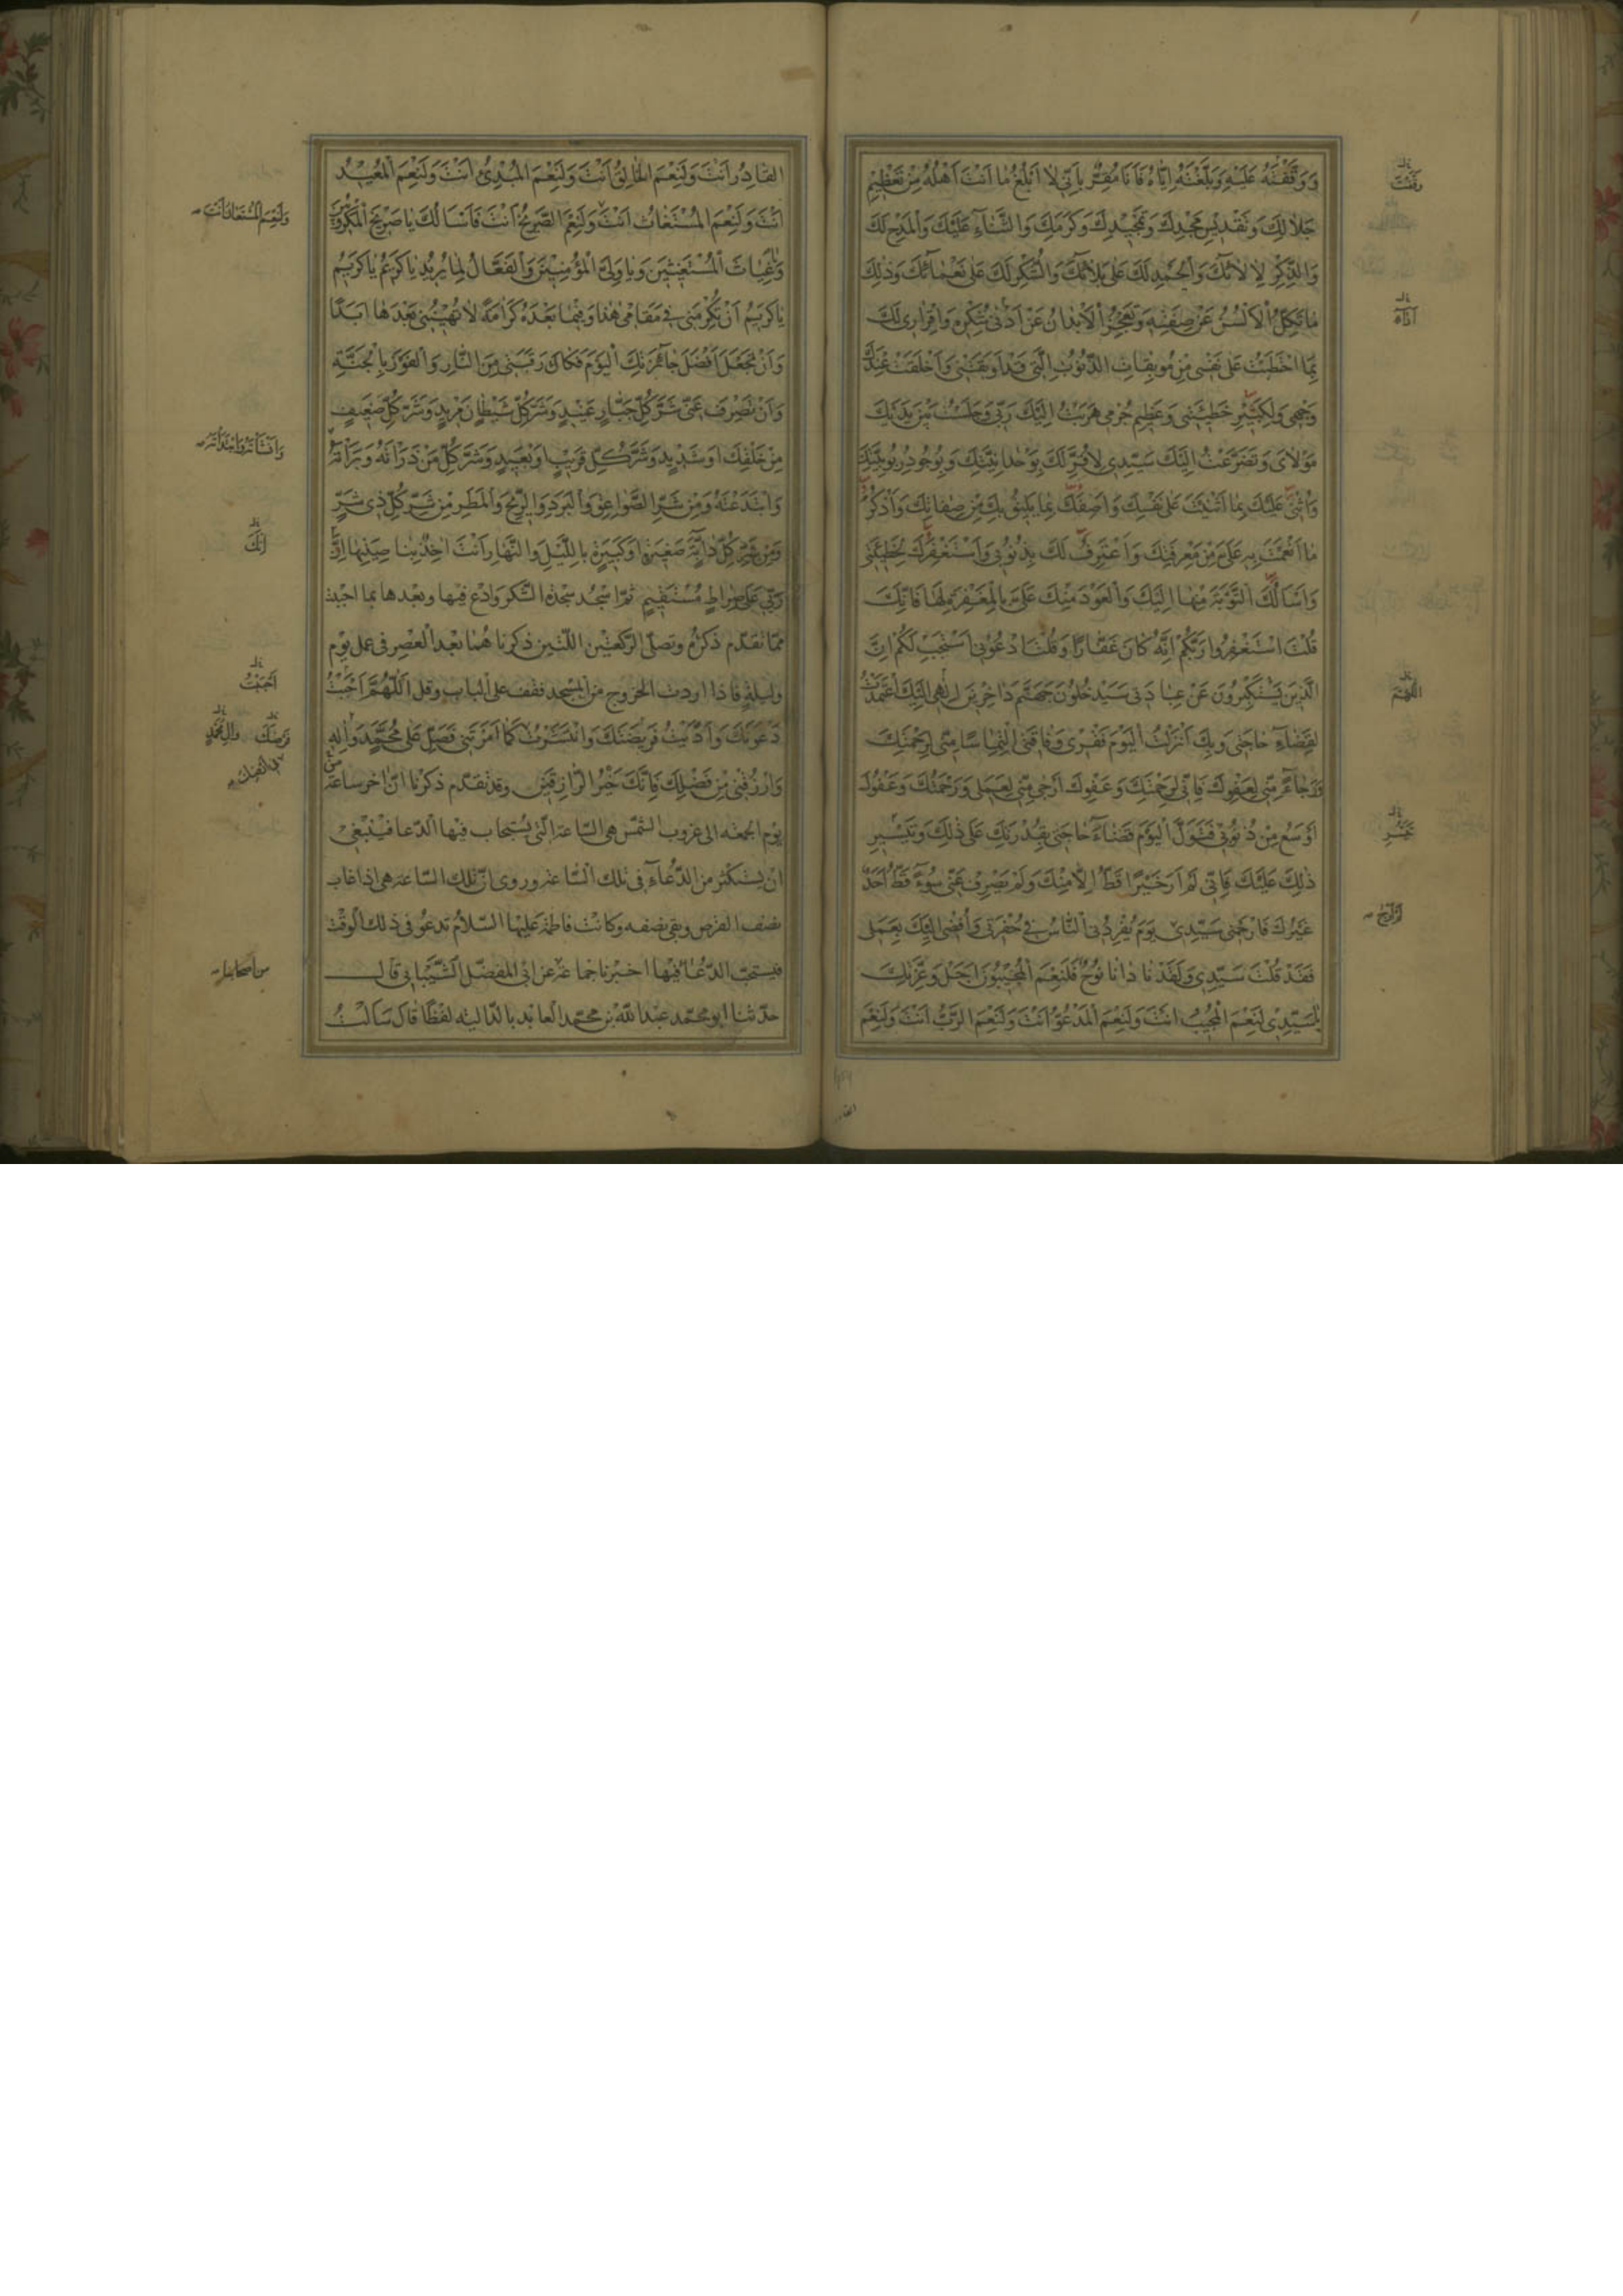 وَوَقَّفْتَهُ عَلَيْهِ وَبَلَّغْتَهُ اِيَّاهُ فَاَنَا مُقِرٌّ بِاَنّى لا اَبْلُغُ ما اَنْتَ اَهْلُهُ مِنْ تَعْظيمِ
جَلالِكَ وَتَقْديسِ مَجْدِكَ وَتَمْجيدِكَ وَكَرَمِكَ وَالثَّناءِ عَلَيْكَ وَالْمَدْحِ لَكَ
وَالذِّكْرِ لِالائِكَ وَالْحَمْدِ لَكَ عَلى بَلائِكَ وَالشُّكْرِ لَكَ عَلى نَعْمائِكَ وَذلِكَ
ما تَكِلُّ الْاَلْسُنُ عَنْ صِفَتِهِ وَتَعْجِزُ الْاَبْدانُ عَنْ اَدْنى شُكْرِهِ وَاِقْرارى لَكَ
بِما احْتَطَبْتُ عَلى نَفْسى مِنْ مُوبِقاتِ الذُّنُوبِ الَّتى قَدْ اَوْبَقَتْنى وَاَخْلَقَتْ عِنْدَكَ
وَجْهى وَلِكَبيرِ خَطيئَتى وَعَظيمِ جُرْمى هَرَبْتُ اِلَيْكَ رَبّى وَجَلَسْتُ بَيْنَ يَدَيْكَ
مَوْلاىَ وَتَضَرَّعْتُ اِلَيْكَ سَيِّدى لِاُقِرَّ لَكَ بِوَحْدانِيَّتِكَ وَبِوُجُودِ رُبُوبِيَّتِكَ
وَاُثْنى عَلَيْكَ بِما اَثْنَيْتَ عَلى نَفْسِكَ وَاَصِفَكَ بِما يَليقُ بِكَ مِنْ صِفاتِكَ وَاَذْكُرُ
ما اَنْعَمْتَ بِهِ عَلَىَّ مِنْ مَعْرِفَتِكَ وَاَعْتَرِفُ لَكَ بِذُنُوبى وَاَسْتَغْفِرُكَ لِخَطيئَتى
وَاَسْاَلُكَ التَّوْبَةَ مِنْها اِلَيْكَ وَالْعَوْدَ مِنْكَ عَلَىَّ بِالْمَغْفِرَةِ لَها فَاِنَّكَ
قُلْتَ اسْتَغْفِرُوا رَبَّكُمْ اِنَّهُ كانَ غَفّارًا وَقُلْتَ ادْعُونى اَسْتَجِبْ لَكُمْ اِنَّ
الَّذينَ يَسْتَكْبِرُونَ عَنْ عِبادَتى سَيَدْخُلُونَ جَهَنَّمَ داخِرينَ اِلهى اِلَيْكَ اعْتَمَدْتُ
لِقَضاءِ حاجَتى وَبِكَ اَنْزَلْتُ الْيَوْمَ فَقْرى وَفاقَتى الْتِماسًا مِنّى لِرَحْمَتِكَ
وَرَجاءً مِنّى لِعَفْوِكَ فَاِنّى لِرَحْمَتِكَ وَعَفْوِكَ اَرْجى مِنّى لِعَمَلى وَرَحْمَتُكَ وَعَفْوُكَ
اَوْسَعُ مِنْ ذُنُوبى فَتَوَلَّ الْيَوْمَ قَضاءَ حاجَتى بِقُدْرَتِكَ عَلى ذلِكَ وَتَيْسيرِ
ذلِكَ عَلَيْكَ فَاِنّى لَمْ اَرَ خَيْرًا قَطُّ اِلّا مِنْكَ وَلَمْ يَصْرِفْ عَنّى سُوءً قَطُّ اَحَدٌ
غَيْرُكَ فَارْحَمْنى سَيِّدى يَوْمَ يُفْرِدُنى النّاسُ فى حُفْرَتى وَاُفْضى اِلَيْكَ بِعَمَلى
فَقَدْ قُلْتَ سَيِّدى وَلَقَدْ نادانا نُوحٌ فَلَنِعْمَ الْمُجيبُونَ اَجَلْ وَعِزَّتِكَ
يا سَيِّدى لَنِعْمَ الْمُجيبُ اَنْتَ وَلَنِعْمَ الْمَدْعُوُّ اَنْتَ وَلَنِعْمَ الرَّبُّ اَنْتَ وَلَنِعْمَ
اللّهُمَّ
القادر
الْقادِرُ اَنْتَ وَلَنِعْمَ الْخالِقُ اَنْتَ وَلَنِعْمَ الْمُبْدِئُ اَنْتَ وَلَنِعْمَ الْمُعيدُ
اَنْتَ وَلَنِعْمَ الْمُسْتَغاثُ اَنْتَ وَلَنِعْمَ الصَّريخُ اَنْتَ فَاَسْاَلُكَ يا صَريخَ الْمَكْرُوبينَ
وَيا غِياثَ الْمُسْتَغيثينَ وَيا وَلِىَّ الْمُؤْمِنينَ وَالْفَعّالُ لِما يُريدُ يا كَريمُ يا كَريمُ
يا كَريمُ اَنْ تُكْرِمَنى فى مَقامى هذا وَفيما بَعْدَهُ كَرامَةً لا تُهينُنى بَعْدَها اَبَدًا
وَاَنْ تَجْعَلَ اَفْضَلَ جائِزَتِكَ الْيَوْمَ فَكاكَ رَقَبَتى مِنَ النّارِ وَالْفَوْزَ بِالْجَنَّةِ
وَاَنْ تَصْرِفَ عَنّى شَرَّ كُلِّ جَبّارٍ عَنيدٍ وَشَرَّ كُلِّ شَيْطانٍ مَريدٍ وَشَرَّ كُلِّ ضَعيفٍ
مِنْ خَلْقِكَ اَوْ شَديدٍ وَشَرَّ كُلِّ قَريبٍ اَوْ بَعيدٍ وَشَرَّ كُلِّ مَنْ ذَرَأْتَهُ وَبَرَأْتَهُ
وَابْتَدَعْتَهُ وَمِنْ شَرِّ الصَّواعِقِ وَالْبَرَدِ وَالرّيحِ وَالْمَطَرِ وَمِنْ شَرِّ كُلِّ ذى شَرٍّ
وَمِنْ شَرِّ كُلِّ دابَّةٍ صَغيرَةٍ اَوْ كَبيرَةٍ بِاللَّيْلِ وَالنَّهارِ اَنْتَ اخِذٌ بِناصِيَتِها اِنَّ
رَبّى عَلى صِراطٍ مُسْتَقيمٍ ثمّ اسْجُد سجْدة الشّكر وادْع فيها وبعْدها بما احبْبت
ممّا تقدّم ذكرُه وتصلّى الرّكعتين اللّتين ذكرناهُما بعْد الْعصر فى عمل يوم
وليلة فاذا اردت الخروج من المسْجد فقف على الباب وقل اَللّهُمَّ اَجَبْتُ
دَعْوَتَكَ وَاَدَّيْتُ فَريضَتَكَ وَانْتَشَرْتُ كَما اَمَرْتَنى فَصَلِّ عَلى مُحَمَّدٍ وَالِهِ
وَارْزُقْنى مِنْ فَضْلِكَ فَاِنَّكَ خَيْرُ الرّازِقينَ وقد تقدّم ذكرنا انّ اخر ساعة من
يوم الجمعة الى غروب الشّمس هى السّاعة الّتى يُستجاب فيها الدّعا فينْبغى
ان يستكثر من الدّعاء فى تلك السّاعة وروى انّ تلك السّاعة هى اذا غاب
نصف القرص وبقى نصفه وكانت فاطمة عليها السّلام تدعُو فى ذلك الوقت
فيستحبّ الدّعاء فيها اخبرنا جماعة عن ابى المفضّل الشّيبانى قال
حدّثنا ابو محمّد عبد اللّه بن محمّد العابد بالدّالية لفظًا قال سَاَلْتُ
وَلَنِعْمَ الْمُسْتَعانُ اَنْتَ
اِنَّكَ
اَجَبْتُ
من اصحابنا